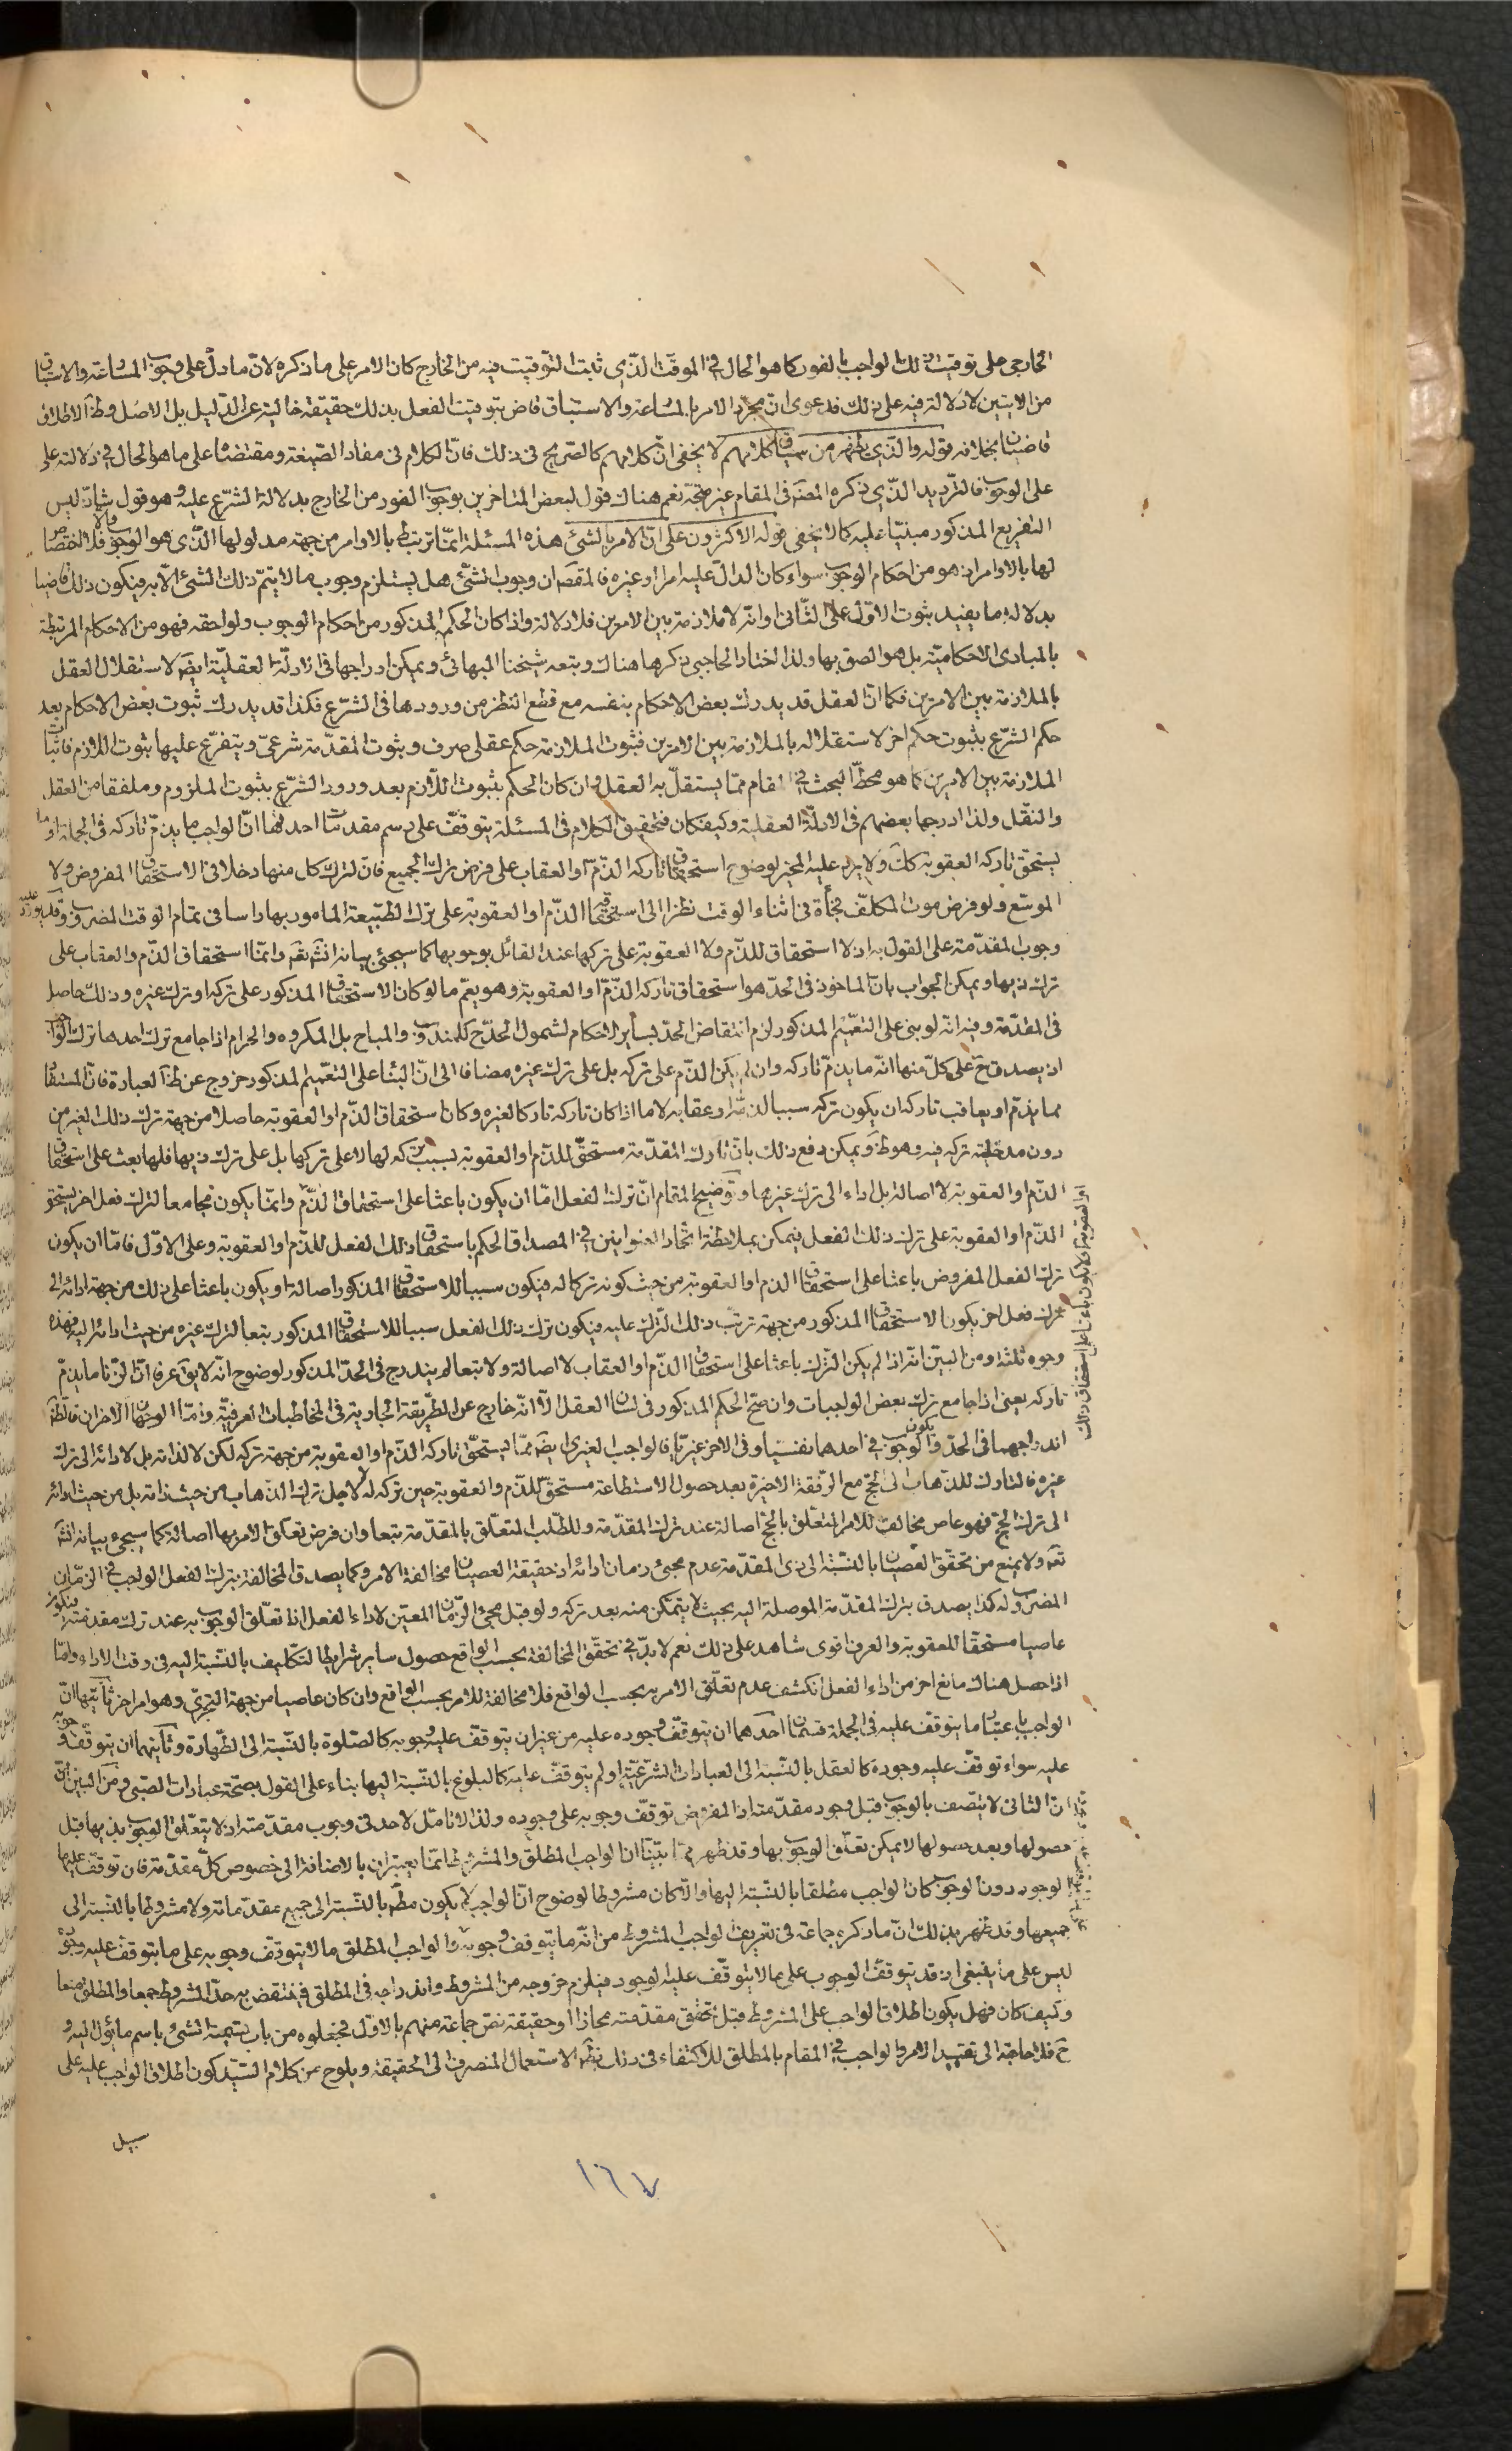 الخارجي على توقيت ذلك الواجب بالفور كما هو الحال في الموقت الذي ثبت التوقيت فيه من الخارج كان الامر على ما ذكره لان ما دل على وجوب المسارعة والاستباق
من الايتين لا دلالة فيه على ذلك فدعوى ان مجرد الامر بالمسارعة والاستباق قاض بتوقيت الفعل بذلك حقيقة خالية عن الدليل بل الاصل وظ الاطلاق
قاضيان بخلافه قوله والذي يظهر من سياق كلامهم لا يخفى ان كلامهم كالصريح في ذلك فان الكلام في مفاد الصيغة ومقتضاها على ما هو الحال في دلالته على
على الوجوب فالترديد الذي ذكره المصنف في المقام غير متجه نعم هناك قول لبعض المتاخرين بوجوب الفور من الخارج بدلالة الشرع عليه وهو قول شاذ ليس
التفريع المذكور مبنيا عليه كما لا يخفى قوله الاكثرون على ان الامر بالشئ هذه المسئلة انما ترتبط بالاوامر من جهة مدلولها الذي هو الوجوب والا فلا اختصاص
لها بالاوامر اذ هو من احكام الوجوب سواء كان الدال عليه امرا او غيره فالمقصود ان وجوب الشئ هل يستلزم وجوب ما لا يتم ذلك الشئ الا به فيكون ذلك قاضيا
بدلالة ما يفيد ثبوت الاول على الثاني او انه لا ملازمة بين الامرين فلا دلالة واذا كان الحكم المذكور من احكام الوجوب ولواحقه فهو من الاحكام المرتبطة
بالمبادي الاحكامية بل هو الصق بها ولذا اختار الحاجبي ذكرها هناك وتبعه شيخنا البهائي ويمكن ادراجها في الادلة العقلية ايض لاستقلال العقل
بالملازمة بين الامرين فكما ان العقل قد يدرك بعض الاحكام بنفسه مع قطع النظر من ورودها في الشرع فكذا قد يدرك ثبوت بعض الاحكام بعد
حكم الشرع بثبوت حكم اخر لاستقلاله بالملازمة بين الامرين فثبوت الملازمة حكم عقلي صرف وثبوت المقدمة شرعي ويتفرع عليها ثبوت اللازم فاثبات
الملازمة بين الامرين كما هو محط البحث في المقام مما يستقل به العقل وان كان الحكم بثبوت اللازم بعد ورود الشرع بثبوت الملزوم وملفقا من العقل
والنقل ولذا ادرجها بعضهم في الادلة العقلية وكيف كان فتحقيق الكلام في المسئلة يتوقف على رسم مقدمات احدها ان الواجب ما يذم تاركه في الجملة او ما
يستحق تاركه العقوبة كك ولا يرد عليه المخير لوضوح استحقاق تاركه الذم او العقاب على فرض ترك الجميع فان لترك كل منها دخلا في الاستحقاق المفروض ولا
الموسع ولو فرض موت المكلف فجأة في اثناء الوقت نظرا الى استحقاق الذم او العقوبة على ترك الطبيعة المامور بها راسا في تمام الوقت المضروب وقد يورد عليه
وجوب المقدمة على القول به اذ لا استحقاق للذم ولا العقوبة على تركها عند القائل بوجوبها كما سيجئ بيانه انشه تعه وانما استحقاق الذم والعقاب على
ترك ذيها ويمكن الجواب بان الماخوذ في الحد هو استحقاق تاركه الذم او العقوبة وهو يعم ما لو كان الاستحقاق المذكور على تركه او ترك غيره وذلك حاصل
في المقدمة وفيه انه لو بنى على التعميم المذكور لزم انتقاض الحد بساير الاحكام لشمول الحد ح للمندوب والمباح بل المكروه والحرام اذا جامع ترك احدها ترك الواجب
اذ يصدق ح على كل منها انه ما يذم تاركه وان لم يكن الذم على تركه بل على ترك غيره مضافا الى ان البناء على التعميم المذكور خروج عن ظ العبارة فان المستفاد
مما يذم او يعاقب تاركه ان يكون تركه سببا لذمه او عقابه لا ما اذا كان تاركه تاركا لغيره وكان استحقاق الذم او العقوبة حاصلا من جهة ترك ذلك الغير من
دون مدخلية تركه فيه وهو ظ ويمكن دفع ذلك بان تارك المقدمة مستحق للذم او العقوبة بسبب تركه لها لا على تركها بل على ترك ذيها فلها بعث على استحقاق
الذم او العقوبة لا اصالة بل اداء الى ترك غيرها وتوضيح المقام ان ترك الفعل اما ان يكون باعثا على استحقاق الذم وانما يكون مجامعا لترك فعل اخر يستحق
الذم او العقوبة على ترك ذلك الفعل فيمكن بملاحظة اتحاد العنوانين في المصداق الحكم باستحقاق ذلك الفعل للذم او العقوبة وعلى الاول فاما ان يكون
ترك الفعل المفروض باعثا على استحقاق الذم او العقوبة من حيث كونه تركا له فيكون سببا للاستحقاق المذكور اصالة او يكون باعثا على ذلك من جهة ادائه الى
ترك فعل اخر يكون الاستحقاق المذكور من جهة ترتب ذلك الترك عليه فيكون ترك ذلك الفعل سببا للاستحقاق المذكور بتعا لترك غيره من حيث ادائه اليه فهذه
وجوه ثلثة ومن البين انه اذا لم يكن الترك باعثا على استحقاق الذم او العقاب لا اصالة ولا تبعا لم يندرج في الحد المذكور لوضوح انه لا يق عرفا ان الزنا ما يذم
تاركه يعني اذا جامع ترك بعض الواجبات وان صح الحكم المذكور في لسان العقل الا انه خارج عن الطريقة الجارية في المخاطبات العرفية واما الوجهان الاخران فالظ
اندراجهما في الحد ويكون الوجوب في احدهما نفسيا وفي الاخر غيريا فالواجب الغيري ايض مما يستحق تاركه الذم او العقوبة من جهة تركه لكن لا لذاته بل لادائه الى ترك
غيره فالتارك للذهاب الى الحج مع الرفقة الاخيرة بعد حصول الاستطاعة مستحق للذم والعقوبة حين تركه له لاجل ترك الذهاب من حيث ذاته بل من حيث ادائه
الى ترك الحج فهو عاص مخالف للامر المتعلق بالحج اصالة عند ترك المقدمة وللطلب المتعلق بالمقدمة تبعا وان فرض تعلق الامر بها اصالة كما سيجئ بيانه انشه
تعه ولا يمنع من تحقق العصيان بالنسبة الى ذي المقدمة عدم مجئ زمان ادائه اذ حقيقة العصيان مخالفة الامر وكما يصدق المخالفة بترك الفعل الواجب في الزمان
المضروب له كذا يصدق بترك المقدمة الموصلة اليه بحيث لا يتمكن منه بعد تركه ولو قبل مجئ الزمان المعين لاداء الفعل اذا تعلق الوجوب به عند ترك مقدمته فيكون
عاصيا مستحقا للعقوبة والعرف اقوى شاهد على ذلك نعم لا بد في تحقق المخالفة بحسب الواقع حصول ساير شرايط التكليف بالنسبة اليه في وقت الاداء واما
اذا حصل هناك مانع اخر من اداء الفعل انكشف عدم تعلق الامر به بحسب الواقع فلا مخالفة للامر بحسب الواقع وان كان عاصيا من جهة التجري وهو امر اخر ثانيها ان
الواجب باعتبار ما يتوقف عليه في الجملة قسمان احدهما ان يتوقف وجوده عليه من غير ان يتوقف عليه وجوبه كالصلوة بالنسبة الى الطهارة وثانيهما ان يتوقف وجوبه
عليه سواء توقف عليه وجوده كالعقل بالنسبة الى العبادات الشرعية او لم يتوقف عليه كالبلوغ بالنسبة اليها بناء على القول بصحة عبادات الصبي ومن البين ان
الثاني لا يتصف بالوجوب قبل وجود مقدمته اذ المفروض توقف وجوبه على وجوده ولذا لا تامل لاحد في وجوب مقدمته اذ لا يتعلق الوجوب بذيها قبل
حصولها وبعد حصولها لا يمكن تعلق الوجوب بها وقد ظهر مما بينا ان الواجب المطلق والمشروط انما يعتبران بالاضافة الى خصوص كل مقدمة فان توقف عليها
الوجود دون الوجوب كان الواجب مطلقا بالنسبة اليها والا كان مشروطا لوضوح ان الواجب لا يكون مطه بالنسبة الى جميع مقدماته ولا مشروطا بالنسبة الى
جميعها وقد ظهر بذلك ان ما ذكره جماعة في تعريف الواجب المشروط من انه ما يتوقف وجوبه والواجب المطلق ما لا يتوقف وجوبه على ما يتوقف عليه وجوده
ليس على ما ينبغي اذ قد يتوقف الوجوب على ما لا يتوقف عليه الوجود فيلزم خروجه من المشروط واندراجه في المطلق فينتقض به حد المشروط جمعا والمطلق منعا
وكيف كان فهل يكون اطلاق الواجب على المشروط قبل تحقق مقدمته مجازا او حقيقة نص جماعة منهم بالاول فجعلوه من باب تسمية الشئ باسم ما يؤل اليه و
ح فلا حاجة الى تقييد الامر والواجب في المقام بالمطلق للاكتفاء في ذلك بظهر الاستعمال المنصرف الى الحقيقة ويلوح من كلام السيد كون اطلاق الواجب عليه على
سبيل
١٦٧
او العقوبة او لا يكون باعثا على استحقاق ذلك